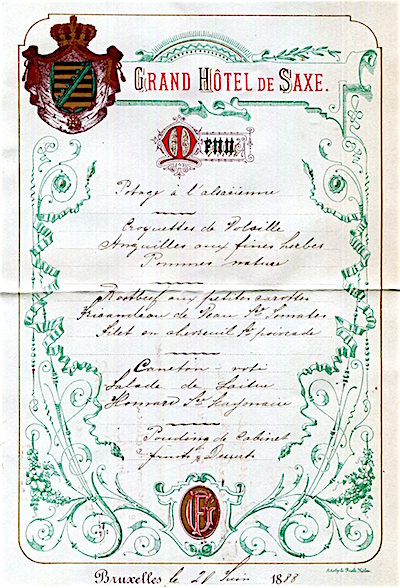 GRAND HÔTEL DE SAXE.
Menu
Potage à l'alsacienne
Croquettes de Volaille
Anguilles aux fines herbes
Pommes nature
Rostbeef aux petites carottes
Fricandeau de Veau Sce Tomates
Filet en chevreuil Sce poivrade
Caneton roti
Salade de Laitue
Homard Sce Mayonaise
Pouding de Cabinet
fruits Dessert
Bruxelles le Juin 1888